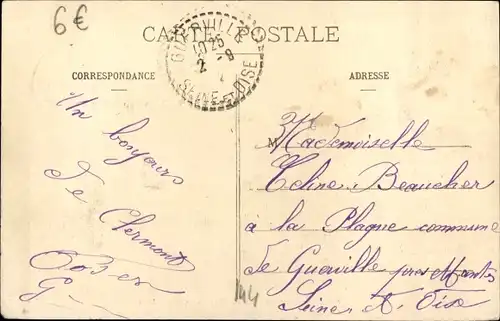 6€
CARTE POSTALE
GUERVILLE
10 25
2 -8
SEINE-ET-OISE
CORRESPONDANCE
ADRESSE
Un bonjour
de Clermont
G
M
Mademoiselle
Celine Beaucher
à la Plagne commune
de Guerville près Mantes
Seine & Oise
144